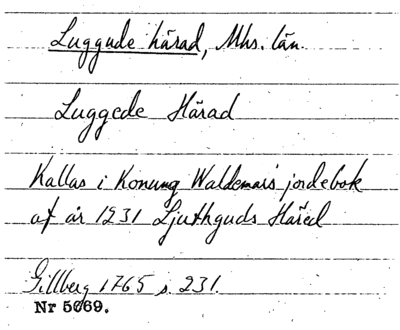 Luggude härad, Mhs. län.
Luggede Härad
Kallas i Konung Waldemars jordebok
af år 1231 Ljuthguds Häred
Gillberg 1765 s. 231.
Nr 5669.